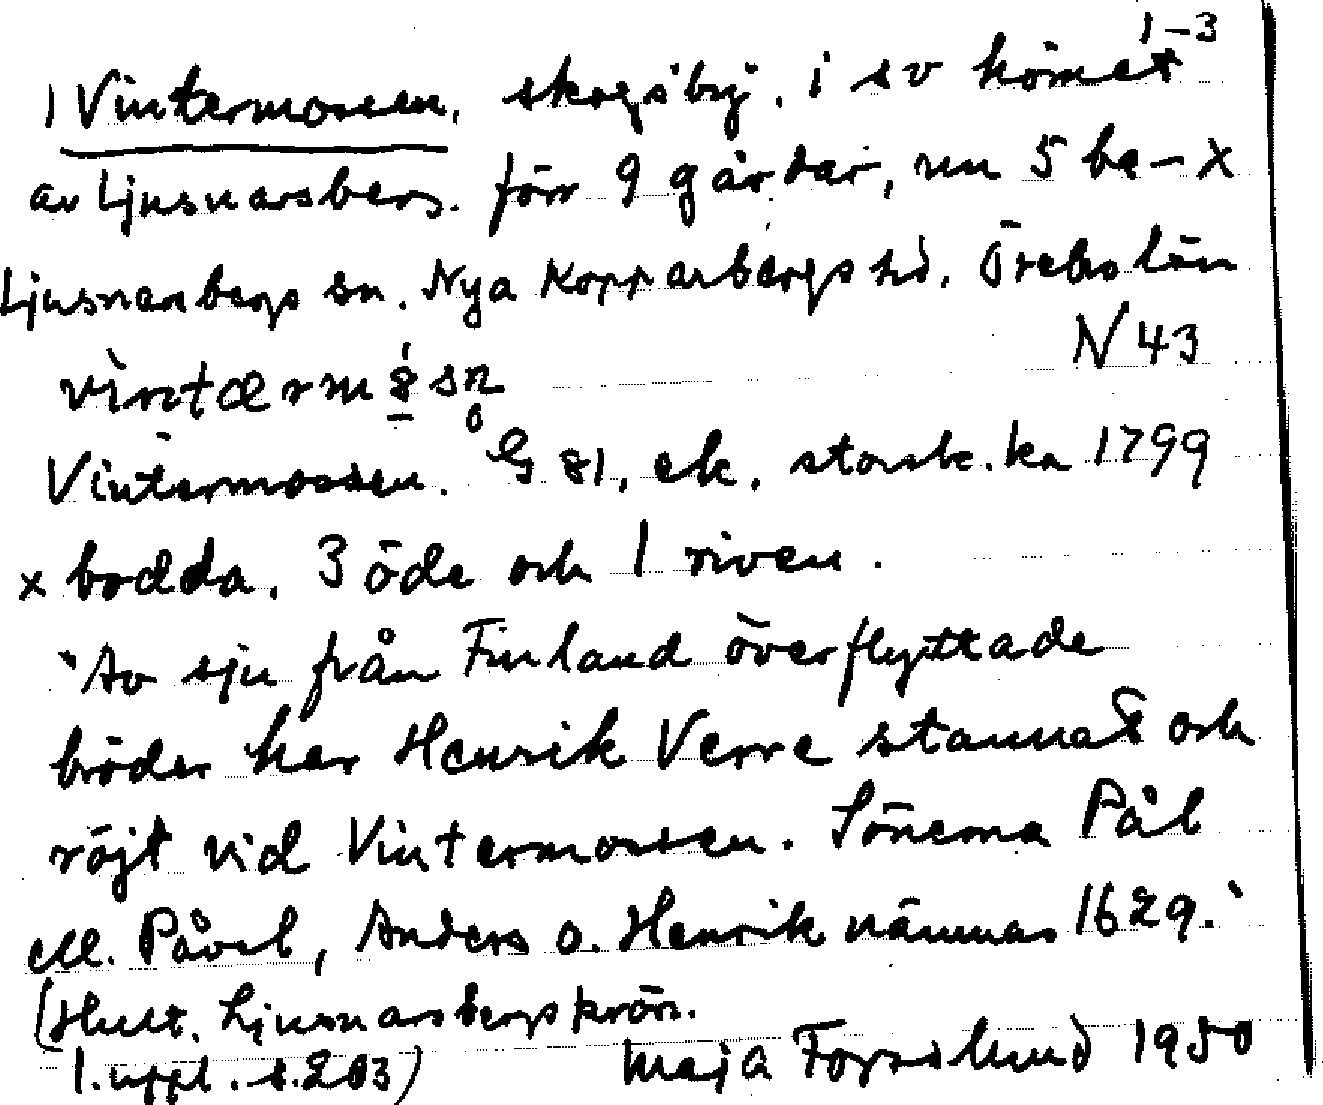 1-3
) Vintermossen, skogsby, i sv hörnet
av Ljusnarsberg. förr 9 gårdar, nu 5 be- x
Ljusnarsbergs sn. Nya Kopparbergs hd. Örebro län
N 43
Vintermossen. G 81, ek. storsk. ka 1799
x bodda, 3 öde och 1 riven.
"Av sju från Finland överflyttade
bröder har Henrik Verre stannat och
röjt vid Vintermossen. Sönerna Pål
ell. Påvel, Anders o. Henrik nämnas 1629."
(Hult. Ljusnarsbergskrön.
1. uppl. s. 203) Maja Forsslund 1950